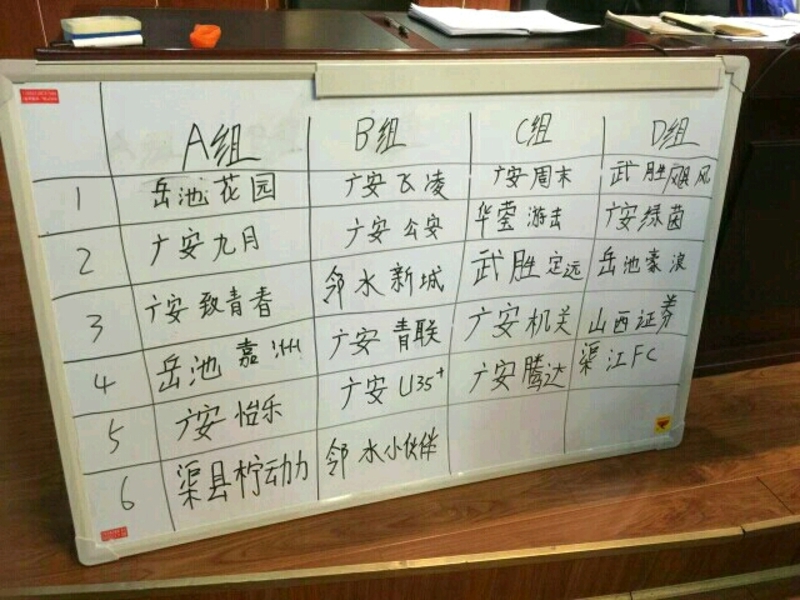 A组 B组 C组 D组
1 岳池花园 广安飞凌 广安周末 武胜飓风
2 广安九月 广安公安 华蓥游击 广安绿茵
3 广安致青春 邻水新城 武胜定远 岳池豪浪
4 岳池嘉洲 广安青联 广安机关 山西证券
5 广安怡乐 广安U35+ 广安腾达 渠江FC
6 渠县柠动力 邻水小伙伴